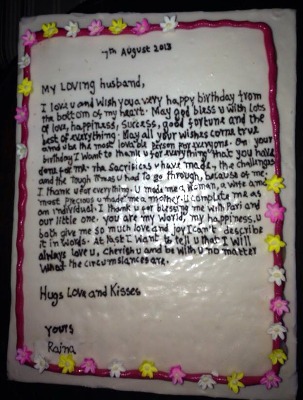 7th August 2013
MY LOVING husband,
I love u and wish you a very happy birthday from
the bottom of my heart. May god bless u with lots
of love, happiness, success, good fortune and the
best of everything. May all your wishes come true
and u be the most lovable person for everyone. On your
birthday I want to thank u for everything that you have
done for me. The sacrifices u have made, the challenges
and the tough times u had to go through, because of me.
I thank u for everything. U made me a woman, a wife and
most precious u made me a mother. U complete me as
an individual. I thank u for blessing me with Pari and
our little one. you are my world, my happiness, u
both give me so much love and joy I can't describe
it in words. At last I want to tell u that I will
always love u, cherish u and be with u no matter
what the circumstances are.
Hugs Love and Kisses
YOURS
Raina